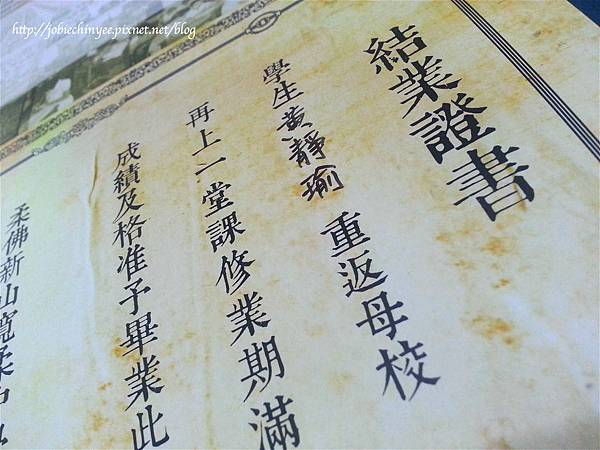 http://jobiechinyee.pixnet.net/blog
結業證書
學生黃靜瑜重返母校
再上一堂課修業期滿
成績及格准予畢業此
柔佛新山寬柔中